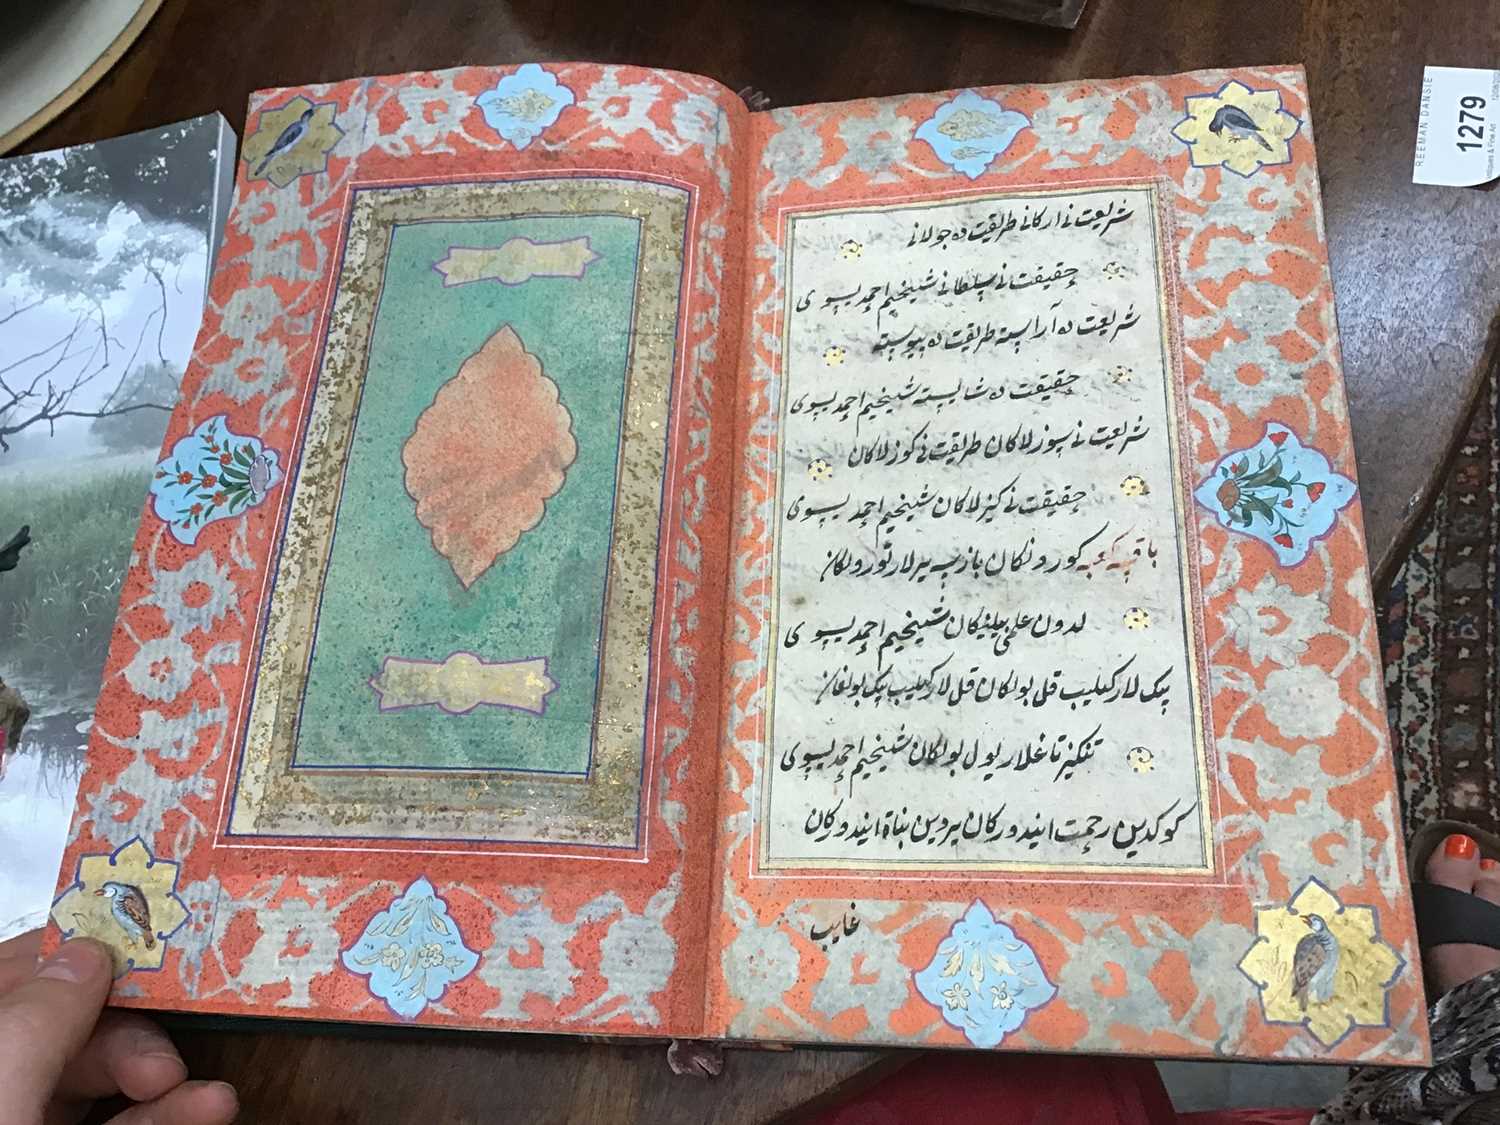 شریعت نی ارکانی طریقت ده جولانی
حقیقت نی سلطانی شیخیم احمد یسوی
شریعت ده آراسته طریقت ده پیوسته
حقیقت ده شایسته شیخیم احمد یسوی
شریعت نی سوزلاکان طریقت نی کوزلاکان
حقیقت نی کیزلاکان شیخیم احمد یسوی
کورونکان بارچه بیرلار تورولکان
لدون علمی بیلیکان شیخیم احمد یسوی
بیک لار کیلیب قل بولکان قل لار کیلیب بیک بولغان
تنکیز تاغلار یول بولکان شیخیم احمد یسوی
کوکدین رحمت ایندورکان یردین بناة ایندورکان
غایب
REEMAN DANSIE
1279